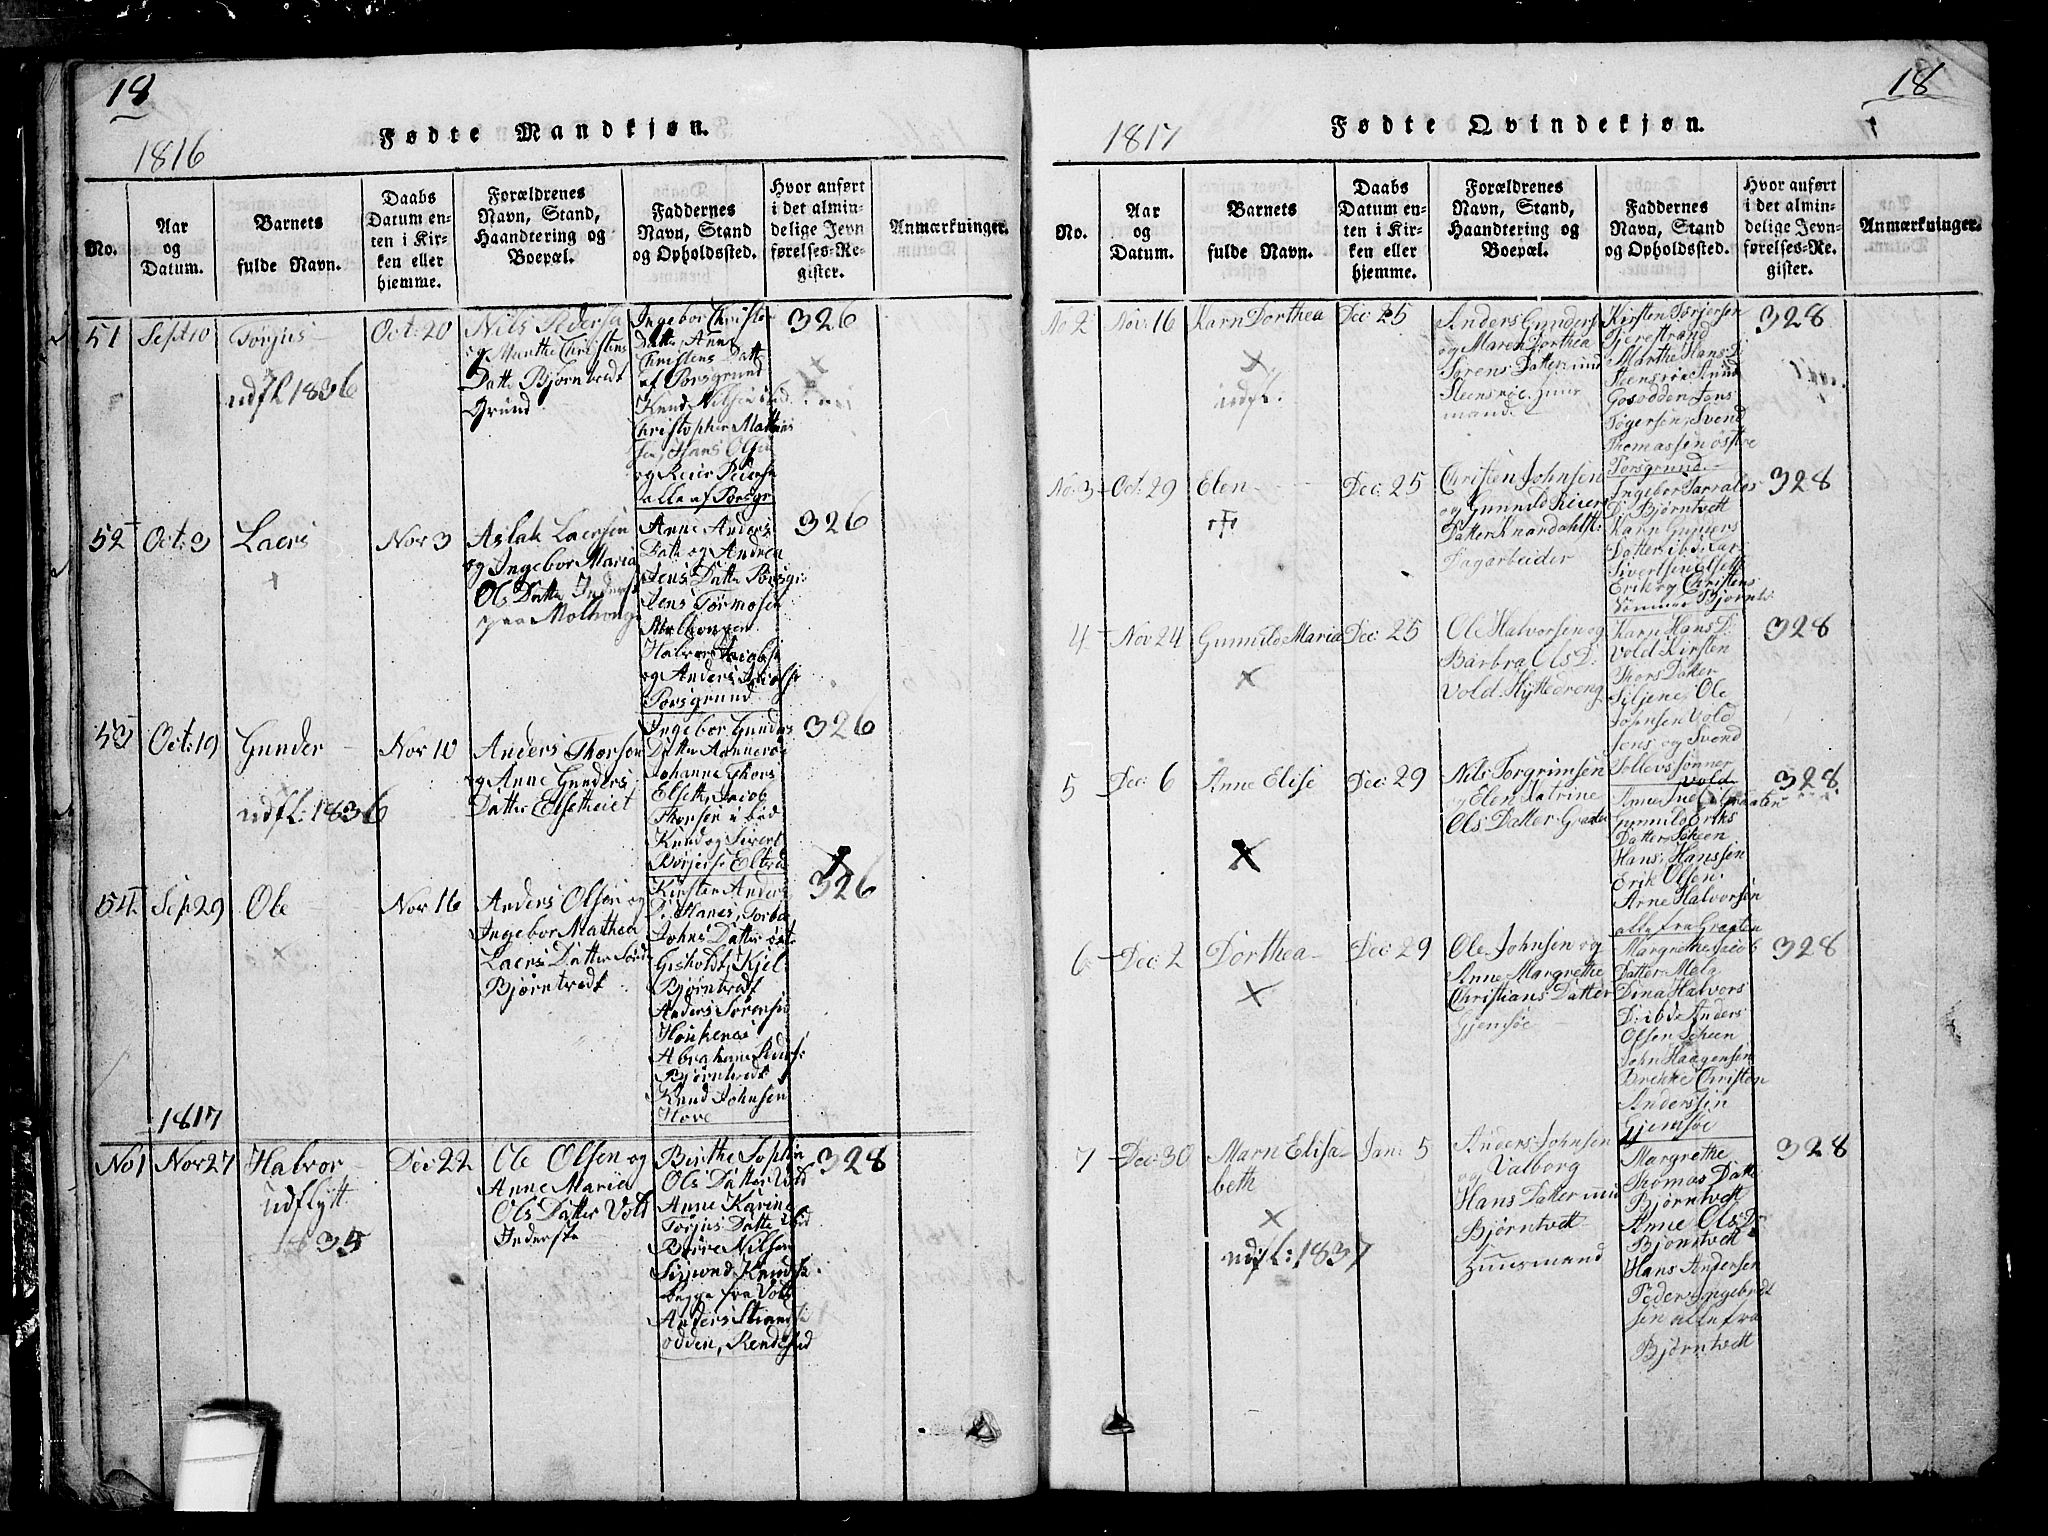 18
1816
Fødte Mandkjøn.
No.
Aar og Datum.
Barnets fulde Navn.
Daabs Datum enten i Kirken eller hjemme.
Forældrenes Navn, Stand, Haandtering og Boepæl.
Faddernes Navn, Stand og Opholdssted.
Hvor anført i det almindelige Jevnførelses-Register.
Anmærkninger.
51
Sept 10
Torjus
udfl 1836
Oct: 20
Nils Pedersa
og Marthe Christens
Datte Bjørntvedt
Grund
Ingebor Christe
Datte, Anne
Christens Datt
af Porsgrund
Knud Nilsen ibid.
Christopher Mathis
sen, Hans Olsen
og Reier Peders
alle af Porsgr
326
52
Oct: 3
Laers
Nov 3
Aslak Laersen
og Ingebor Maria
Ols Datte Inderst
paa Molhoug
Anne Anders
Datt og Andrea
Jens Datte Porsgr:
Jens Tormosen
Molhougen
Halvor Jacobse
og Anders
Porsgrund
326
53
Oct: 19
Gunder
udfl: 1836
Nov 10
Anders Thorsen
og Anne Gunders
Datter Elsetheiet
Ingebor Gunders
Datte
Johanne Thors
Elseth, Jacob
Thorsen ibid
Knud og Sivert
326
54
Sep 29
Ole
Nov 16
Anders Olsen og
Ingebor Mathea
Laers Datter
Bjørntvedt
Kirsten Anders
D: Hanes, Torbør
Johns Datter
Gisholdt, Kjel
Bjørntvedt
Anders Sørensen
Abraham Peders:
Bjørntvedt
Knud Johnsen
Hove
326
1817
No 1
Nov 27
Halvor
udflytt
1835
Dec: 22
Ole Olsen og
Anne Maria
Ols Datter Vold
Inderste
Birthe Sophia
Ols Datter Vold
Anne Karine
Torjus Datte ibid
Børe Nilsen
Sigvond Knuds
begge fra Vold
Anders Strand
odden,
328
18
1817
Fødte Qvindekjøn.
No.
Aar og Datum.
Barnets fulde Navn.
Daabs Datum enten i Kirken eller hjemme.
Forældrenes Navn, Stand, Haandtering og Boepæl.
Faddernes Navn, Stand og Opholdssted.
Hvor anført i det almindelige Jevnførelses-Register.
Anmærkninger.
No 2
Nov: 16
Karn Dorthea
udfl.
Dec: 25
Anders Gunders
og Maren Dorthea
Sørens Datter
Steensrøe
mand
Kirsten Torjersen
Tjerestrand
Marthe Hans D.
Steensrøe
Jens
Tøgersen, Svend
Thomassen østre
Porsgrund
328
No: 3
Oct: 29
Elen
Dec: 25
Christen Johnsen
og Gunnild Reiers
Datter Knardahlst:
Dagarbeider
Ingebor
D: Bjørntvedt
Karn Gunders
Datter ibid: Lar
Sivertsen
Erik og Christens
Sønner Bjørntv:
328
4
Nov 24
Gunnild Maria
Dec: 25
Ole Halvorsen og
Barbra Ols D:
Vold. Hyttedreng
Karn Hans D:
Vold. Kirsten
Thors Datter
Siljene, Ole
Johnsen Vold
Jens og Svend
Sollevs sønner
Vold
328
5
Dec: 6
Anne Elise
Dec: 29
Nils Torgrimsen
og Elen Katrine
Ols Datter Graaten
Gunnild Eriks
Datter Scheen
Hans Hanssen
Erik Olsen
Arne Halvorsen
alle fra Graaten
328
6
Dec: 2
Dorthea
Dec: 29
Ole Johnsen og
Anne Margrethe
Christians Datter
Gjemsøe
Margrethe Jacob
Datter Mela
Dina Halvors
D: ibd: Anders
Olsen Scheen
John Haagensen
Brekke Christen
Anderssen
Gjemsøe
328
7
Dec: 30
Marn Elisa-
beth
udfl: 1837
Jan: 5
Anders Johnsen
og Valborg
Hans Datter
Bjørntvedt
Huusmand
Margrethe
Thomas Datt
Bjørntvedt
Anne Ols D:
Bjørntvedt
Hans Andersen
Peder Ingebredt
sen alle fra
Bjørntvedt
328